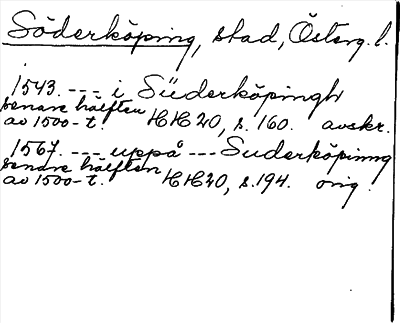 Söderköping, stad, Österg. l.
1543. --- i Süderköpingh
senare hälften
av 1500-t. HH 20, s. 160. avskr.
1567. --- uppå --- Suderköpinng
senare hälften
av 1500-t. HH 20, s. 194. orig.